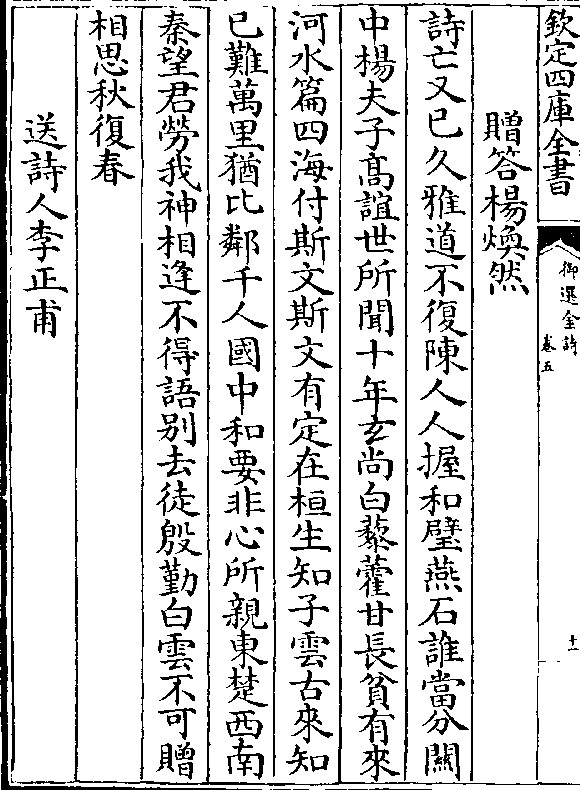 欽定四庫全書
御選金詩
卷五
十一
贈答楊煥然
詩亡又已久雅道不復陳人人握和璧燕石誰當分關
中楊夫子髙誼世所聞十年玄尚白藜藿甘長貧有來
河水篇四海付斯文斯文有定在桓生知子雲古來知
已難萬里猶比鄰千人國中和要非心所親東楚西南
秦望君勞我神相逢不得語别去徒殷勤白雲不可贈
相思秋復春
送詩人李正甫